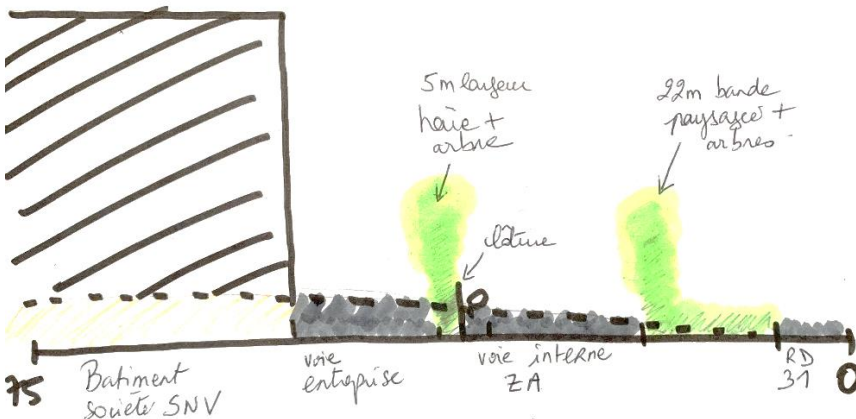 5m largeur
haie +
arbre
22m bande
paysagée +
arbres
clôture
75
Batiment
société SNV
voie
entreprise
voie interne
ZA
RD
31
0